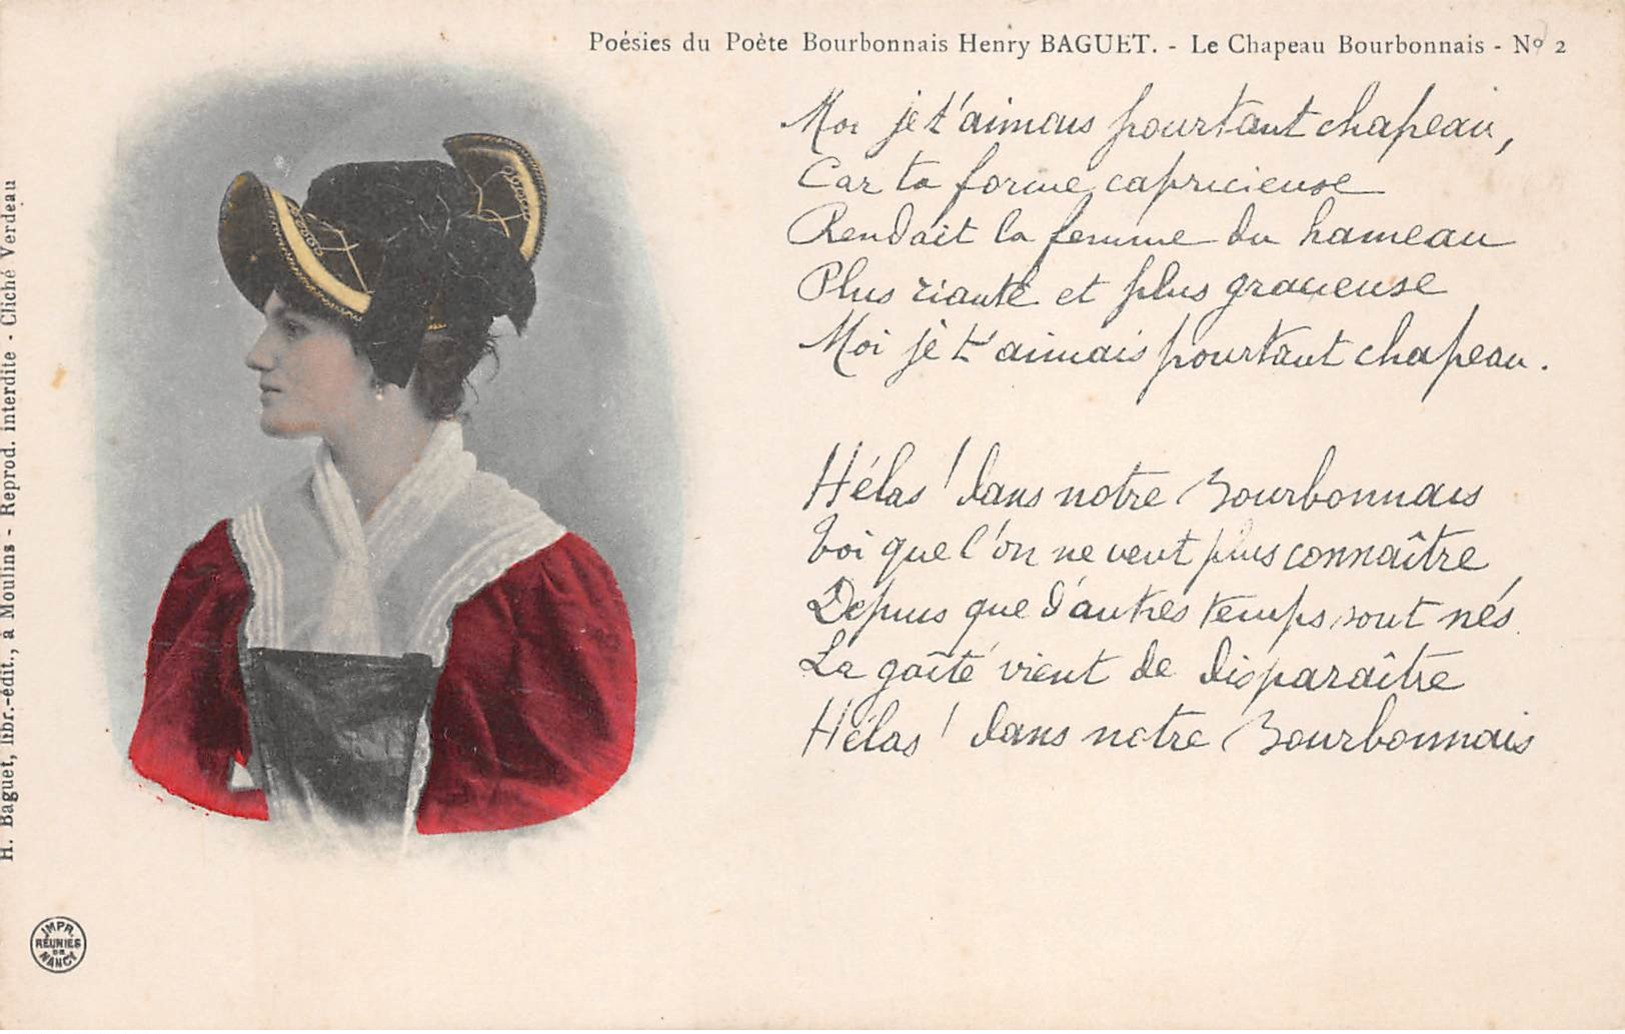 Poésies du Poète Bourbonnais Henry BAGUET. - Le Chapeau Bourbonnais - Nº 2
Moi je t'aimais pourtant chapeau,
Car ta forme capricieuse
Rendait la femme du hameau
Plus riante et plus gracieuse
Moi je t'aimais pourtant chapeau.
Hélas ! dans notre Bourbonnais
Toi que l'on ne veut plus connaître
Depuis que d'autres temps sont nés,
La gaîté vient de disparaître
Hélas ! dans notre Bourbonnais
H. Baguet, libr.-édit., à Moulins - Reprod. interdite - Cliché Verdeau
IMPR.
RÉUNIES
DE
NANCY